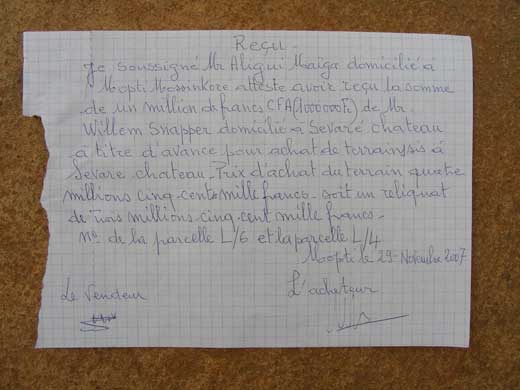 Reçu -
Je soussigné Mr Aligui Maïga domicilié à
Mopti Mossinkore atteste avoir reçu la somme
de un million de francs CFA (1000000F) de Mr
Willem Snapper domicilié à Sevaré château
à titre d'avance pour achat de terrain sis à
Sevaré château - Prix d'achat du terrain quatre
millions cinq-cents mille francs - soit un reliquat
de Trois millions cinq-cent mille francs -
No de la parcelle L/6 et la parcelle L/4
Mopti le 29-Novembre 2007
Le Vendeur
L'acheteur